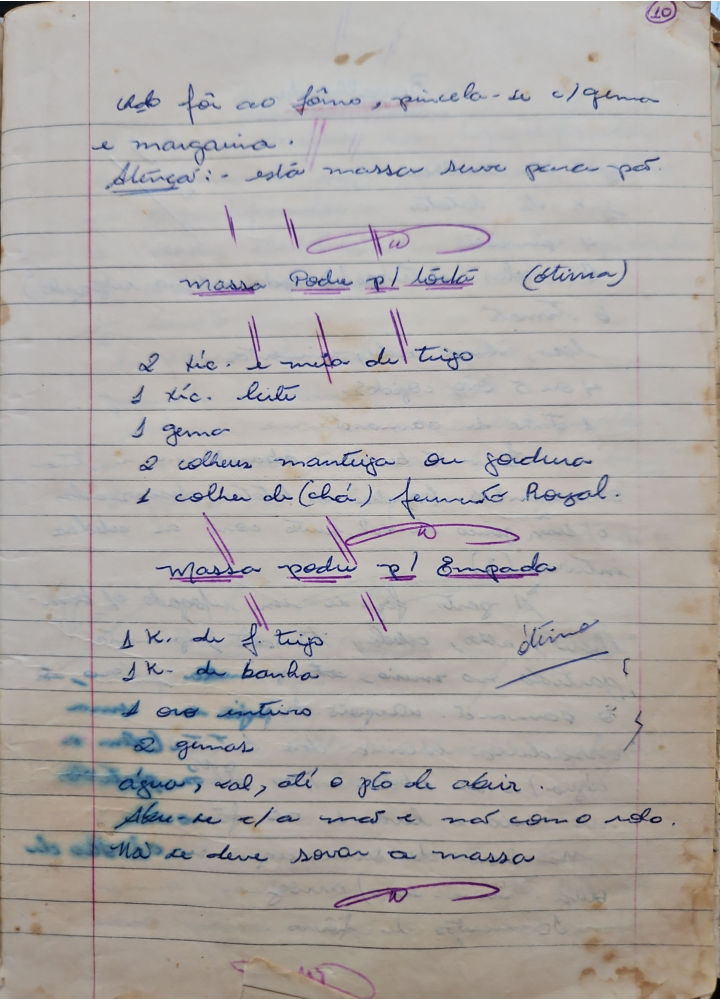 10
qdo fôr ao fôrno, pincela-se c/ gema
e margarina.
Atença:- está massa serve para pão.
Massa Podre p/ tôrta (ótima)
2 xíc. e meia de trigo
1 xíc. leite
1 gema
2 colheres manteiga ou gordura
1 colher de (chá) fermento Royal.
Massa podre p/ Empada
1 K. de f. trigo ótima
1 K- de banha
1 ovo inteiro
2 gemas
água, sal, até o pto de abrir.
Abre-se c/ a mão e não com o rolo.
Não se deve sovar a massa